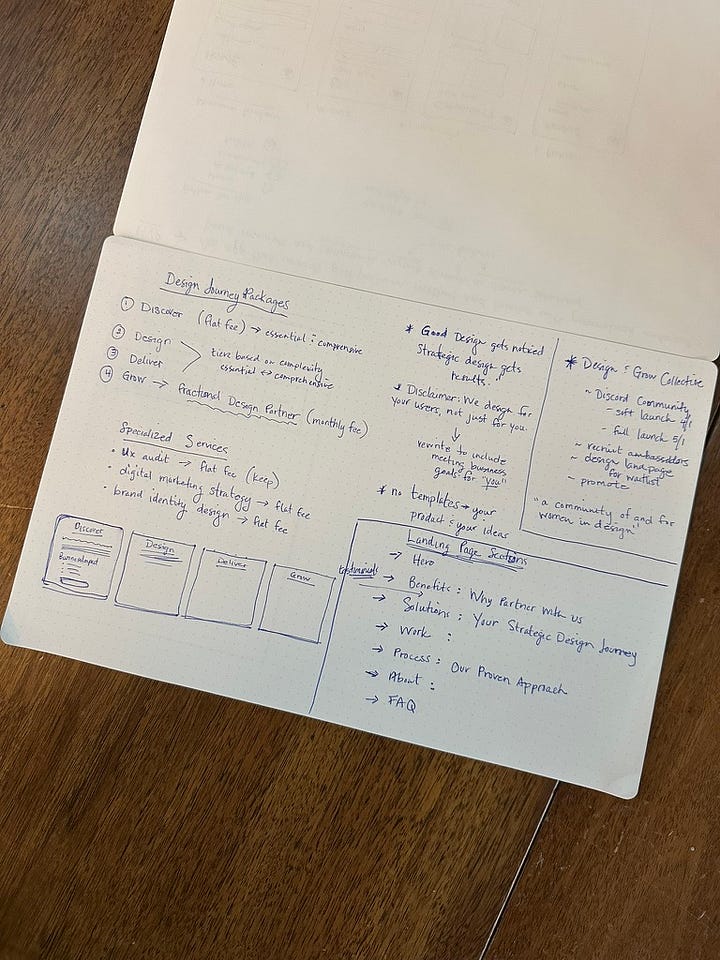 Design Journey Packages
① Discover (flat fee) → essential : comprensive
② Design
③ Deliver
tiers based on complexity
essential ↔ comprehensive
④ Grow → fractional Design Partner (monthly fee)
Specialized Services
• ux audit → flat fee (keep)
• digital marketing strategy → flat fee
• brand identity design → flat fee
Discover
Design
Deliver
Grow
* Good Design gets noticed
Strategic design gets
results."
* Disclaimer: We design for
your users, not just for you.
↓
rewrite to include
meeting business
goals for "you"
* no templates → your
product : your ideas
* Design : Grow Collective
~ Discord Community
- soft launch 4/1
- full launch 5/1
~ recruit ambassadors
~ design landpage
for waitlist
~ promote
"a community of and for
women in design"
Landing Page Sections
→ Hero
testimonials
→ Benefits : Why Partner with us
→ Solutions : Your Strategic Design Journey
→ Work :
→ Process : Our Proven Approach
→ About :
→ FAQ